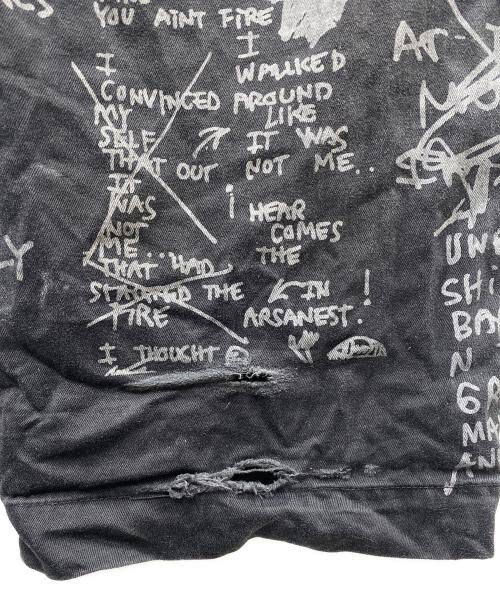 YOU AINT FIRE
I
WALKED
I
CONVINCED AROUND
MY LIKE
SELF IT WAS
THAT OUT NOT ME..
IT
WAS I HEAR
NOT COMES
ME.. THE
THAT HAD
STARTED THE IN !
FIRE ARSANEST.
I THOUGHT
Ar-
LY
UN
SHI
BA
N
GR
MA
AN